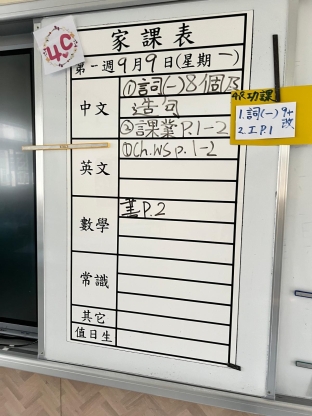 4C
家課表
第一週9月9日(星期一)
中文
①詞(一)8個及
造句
②課業P.1-2
英文
①Ch.WS p.1-2
數學
P.2
常識
其它
值日生
功課
1.詞(一)
改
2.工P.1